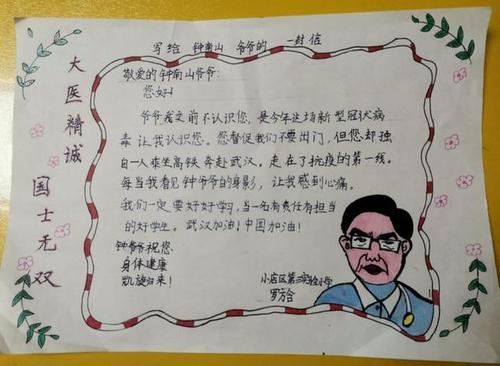 写给 钟南山 爷爷的 一封信
大医精诚
国士无双
敬爱的钟南山爷爷:
您好!
爷爷我之前不认识您,是今年这场新型冠状病
毒让我认识您。您督促我们不要出门,但您却独
自一人乘坐高铁奔赴武汉。走在了抗疫的第一线。
每当我看见钟爷爷的身影,让我感到心痛。
我们一定要好好学习,当一名有责任有担当
的好学生。武汉加油!中国加油!
钟爷爷祝您
身体健康
凯旋归来!
小店区第二实验小学
罗方合